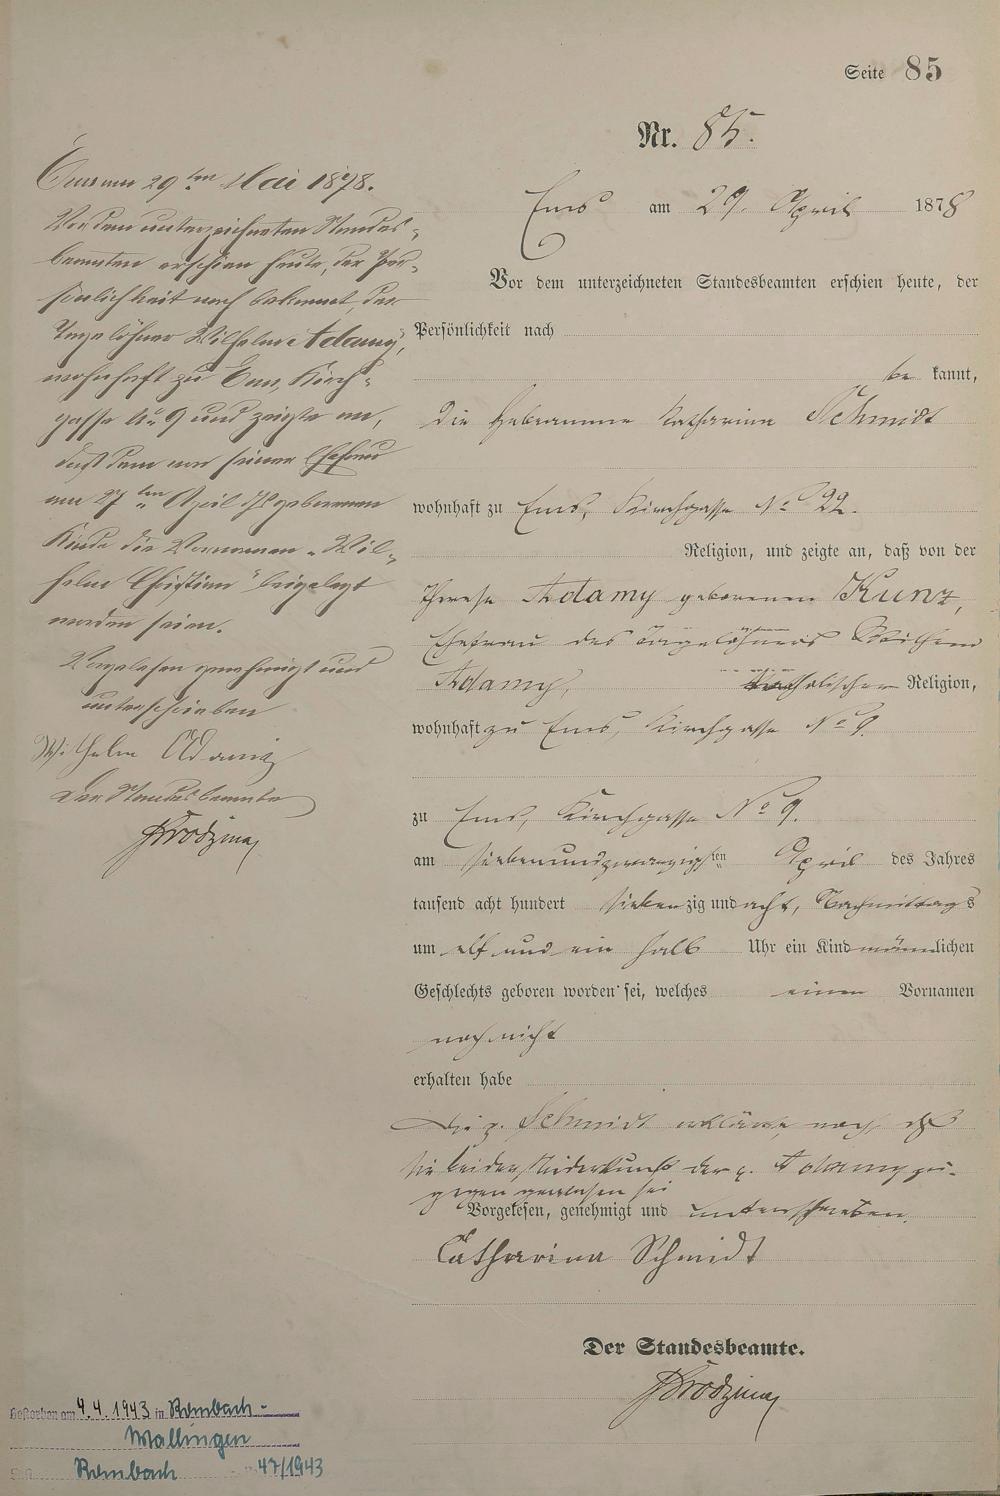 Seite 85
Nr. 85.
Ems am 29. April 1878
Vor dem unterzeichneten Standesbeamten erschien heute, der
Persönlichkeit nach
be kannt,
die Hebamme Katharina Schmidt
wohnhaft zu Ems, Kirchgasse No 22.
Religion, und zeigte an, daß von der
Therese Adamy geborenen Kunz,
Ehefrau des Tagelöhners Wilhelm
Adamy, katholischer Religion,
wohnhaft zu Ems, Kirchgasse No 9.
zu Ems, Kirchgasse No 9.
am siebenundzwanzigsten April des Jahres
tausend acht hundert siebenzig und acht, Nachmittags
um elf und ein halb Uhr ein Kind männlichen
Geschlechts geboren worden sei, welches einen Vornamen
noch nicht
erhalten habe
Die p. Schmidt erklärte noch, daß
sie bei der Niederkunft der p. Adamy zu-
gegen gewesen sei
Vorgelesen, genehmigt und unterschrieben.
Catharina Schmidt
Der Standesbeamte.
Ems am 29ten Mai 1878.
Vor dem unterzeichneten Standes-
beamten erschien heute, der Per-
sönlichkeit nach bekannt, der
Tagelöhner Wilhelm Adamy,
wohnhaft zu Ems, Kirch-
gasse No 9 und zeigte an,
daß dem von seiner Ehefrau
am 27ten April geborenen
Kinde die Vornamen "Wil-
helm Christian" beigelegt
worden seien.
Vorgelesen genehmigt und
unterschrieben
Wilhelm Adamy
Der Standesbeamte
Gestorben am 4.4.1943 in Rombach-
Wallingen
Rombach 47/1943